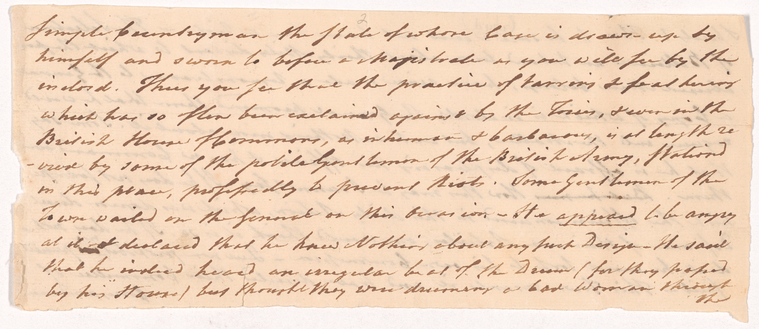 2
Simple Countryman the State of whose Case is drawn up by
himself and sworn to before a Majistrate as you will see by the
inclosd. Thus you see that the practice of tarring & feathering
which has so often been exclaimed against by the Tories, & even in the
British House of Commons, as inhuman & barbarous, is at length re
-vivd by some of the polite Gentlemen of the British Army, stationd
in this place, professedly to prevent Riots. Some Gentlemen of the
Town waited on the General on this Occasion - He appeard to be angry
at it & declared that he knew Nothing about any such Design - He said
that he indeed heard an irregular beat of the Drum (for they passed
by his House) but thought they were drumming a bad Woman through
the